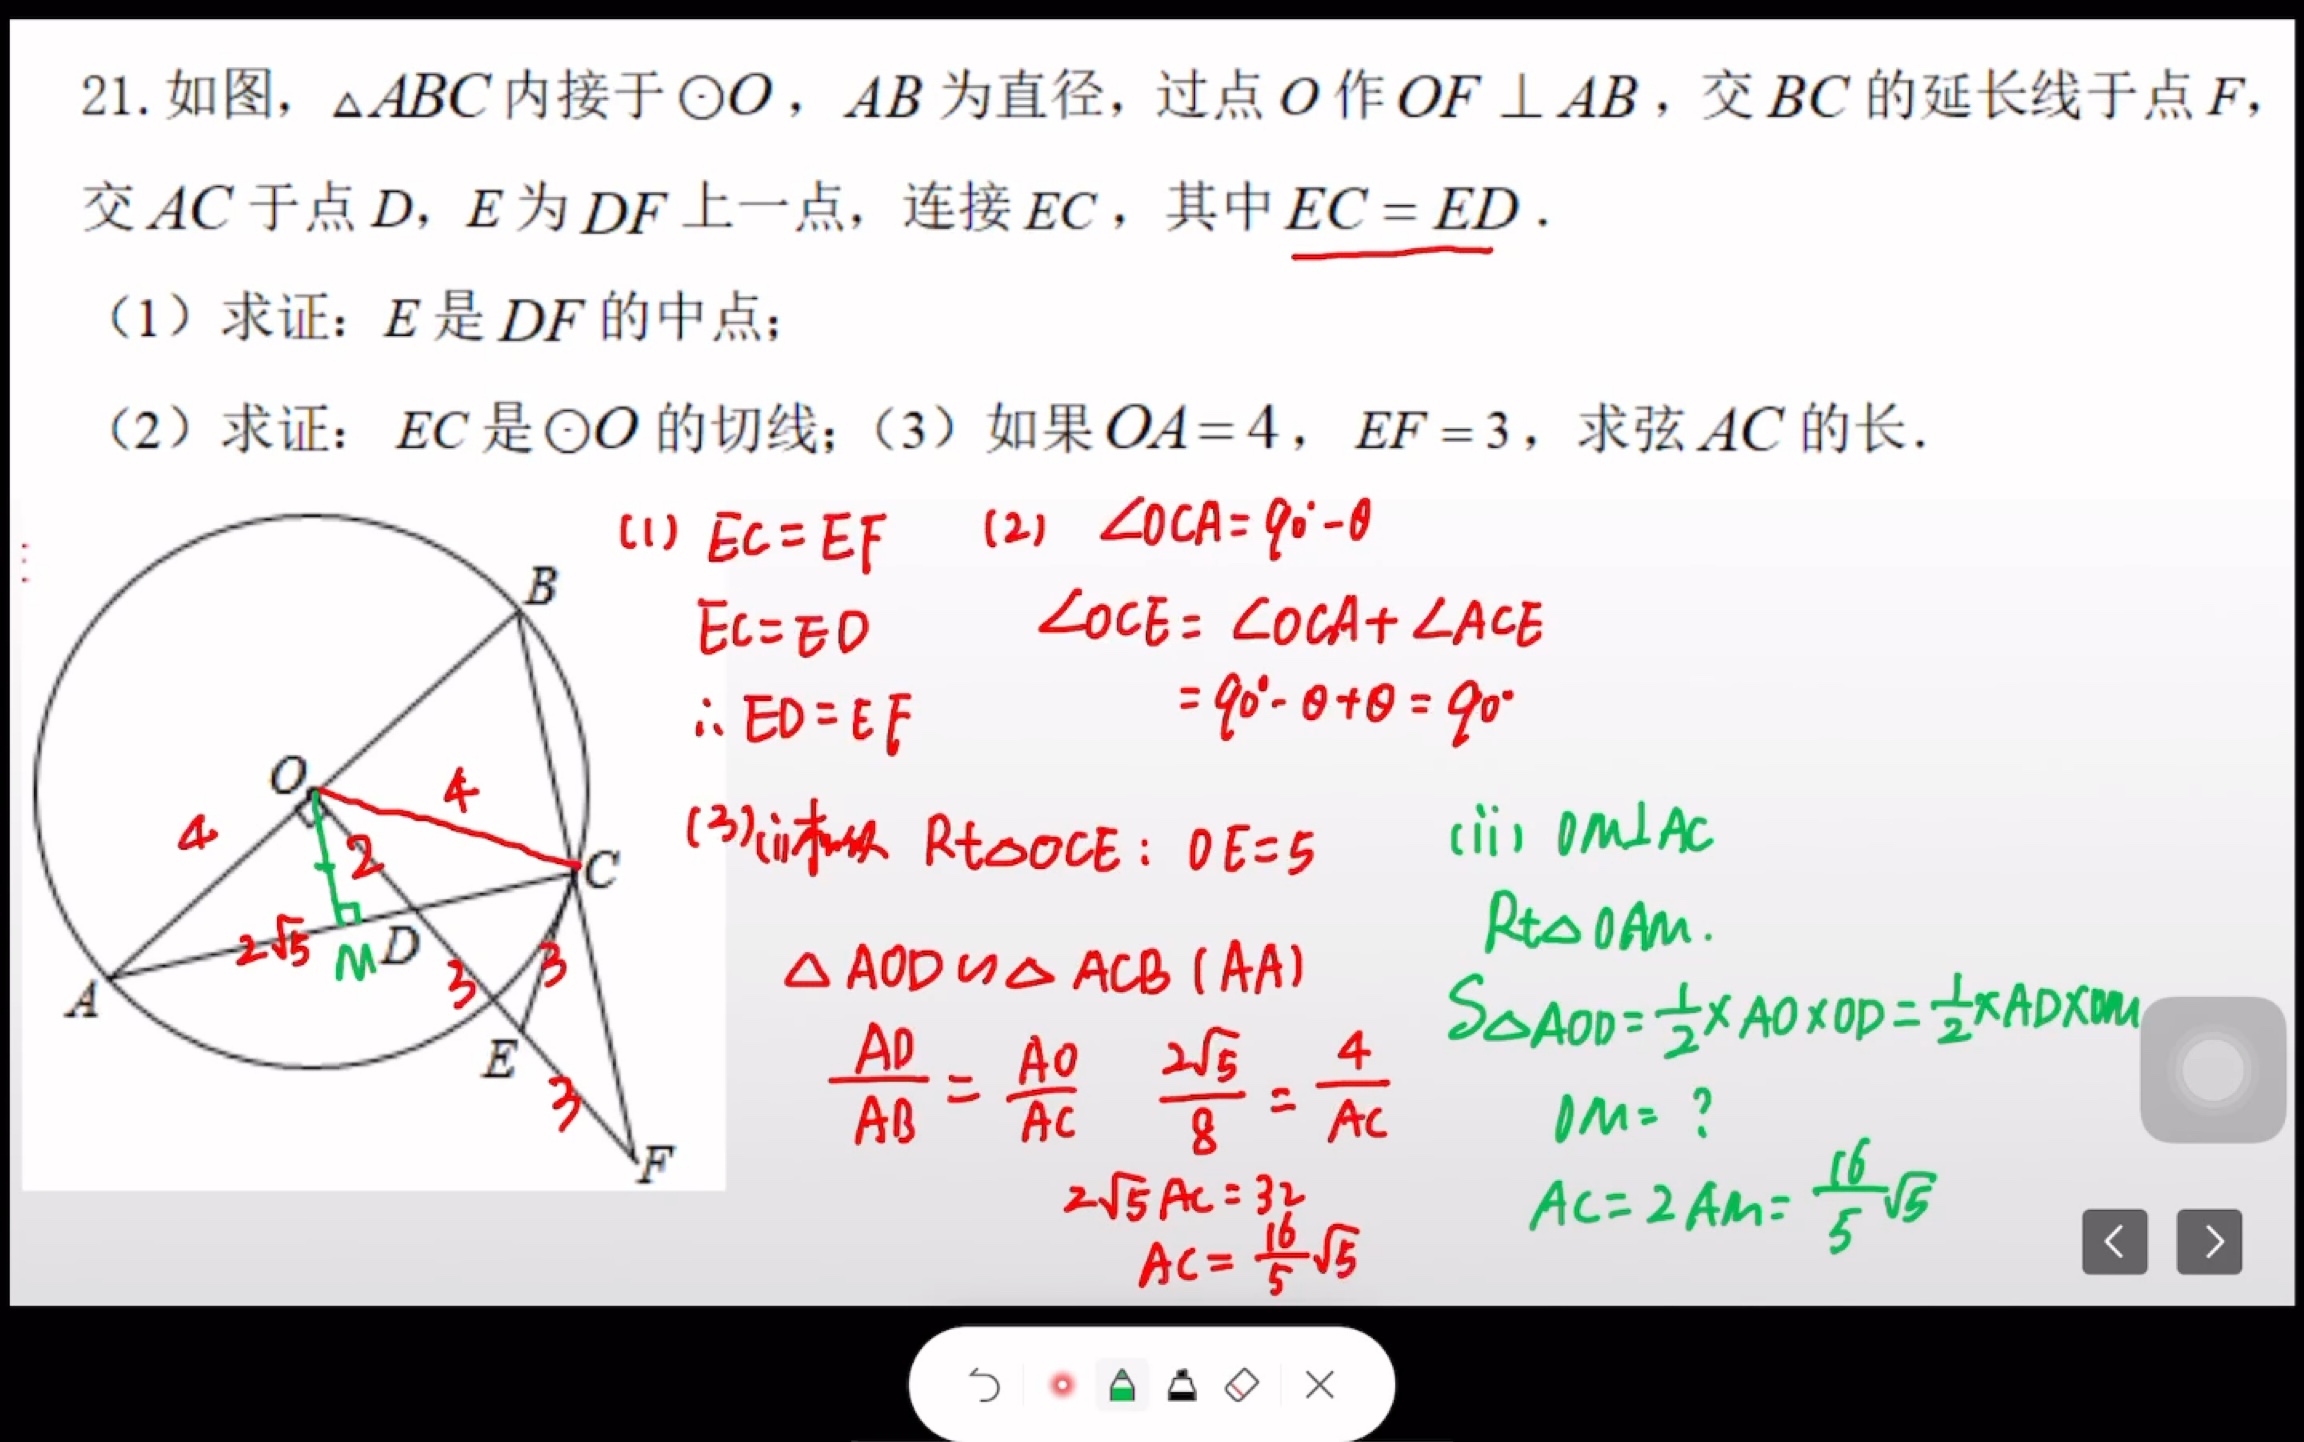 21. 如图，△ABC 内接于 ⊙O，AB 为直径，过点 O 作 OF ⊥ AB，交 BC 的延长线于点 F，
交 AC 于点 D，E 为 DF 上一点，连接 EC，其中 EC = ED．
（1）求证：E 是 DF 的中点；
（2）求证：EC 是 ⊙O 的切线；（3）如果 OA = 4，EF = 3，求弦 AC 的长．
B
O
4
4
2
C
2√5
M
D
A
3
3
E
3
F
(1) EC = EF
EC = ED
∴ ED = EF
(2) ∠OCA = 90° - θ
∠OCE = ∠OCA + ∠ACE
= 90° - θ + θ = 90°
(3) (i) 相似 Rt△OCE : OE = 5
△AOD ∽ △ACB (AA)
AD/AB = AO/AC 2√5/8 = 4/AC
2√5 AC = 32
AC = 16/5 √5
(ii) OM⊥AC
Rt△OAM.
S△AOD = 1/2 × AO × OD = 1/2 × AD × OM
OM = ?
AC = 2AM = 16/5 √5